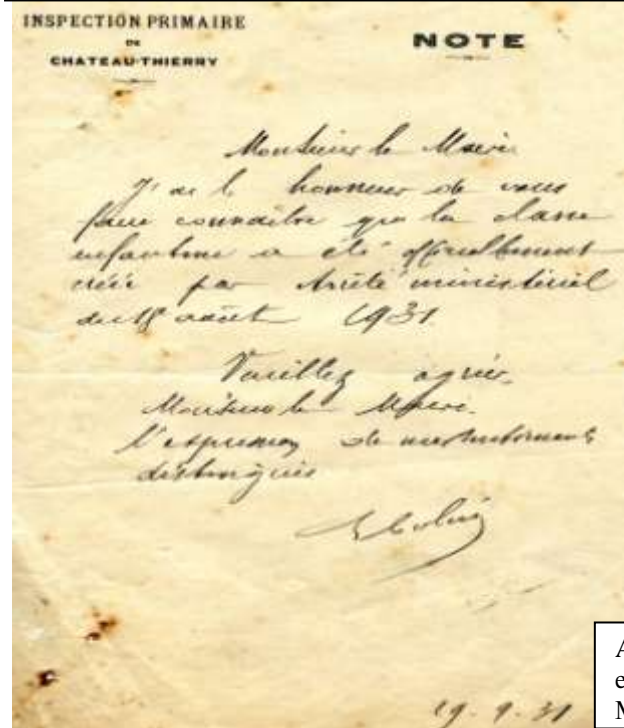 INSPECTION PRIMAIRE
DE
CHATEAU-THIERRY
NOTE
Monsieur le Maire
J'ai l'honneur de vous
faire connaître que la classe
enfantine a été officiellement
créée par Arrêté ministériel
du 18 août 1931
Veuillez agréer,
Monsieur le Maire.
l'expression de mes sentiments
distingués
A
e
M